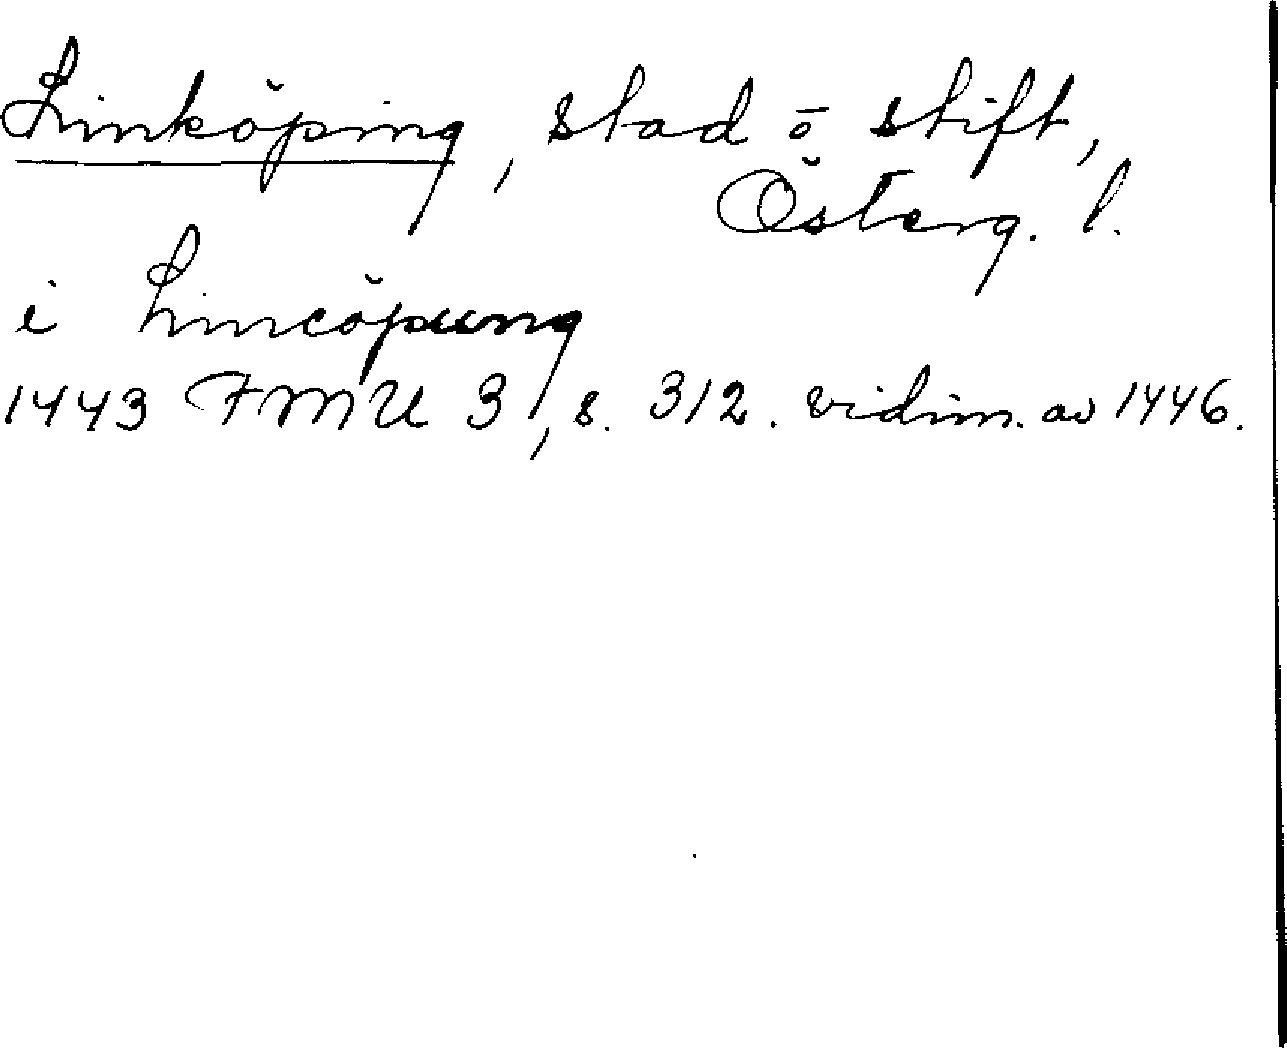 Linköping, stad o stift,
Österg. l.
i Lincöpung
1443 FMU 3, s. 312. vidim. av 1446.